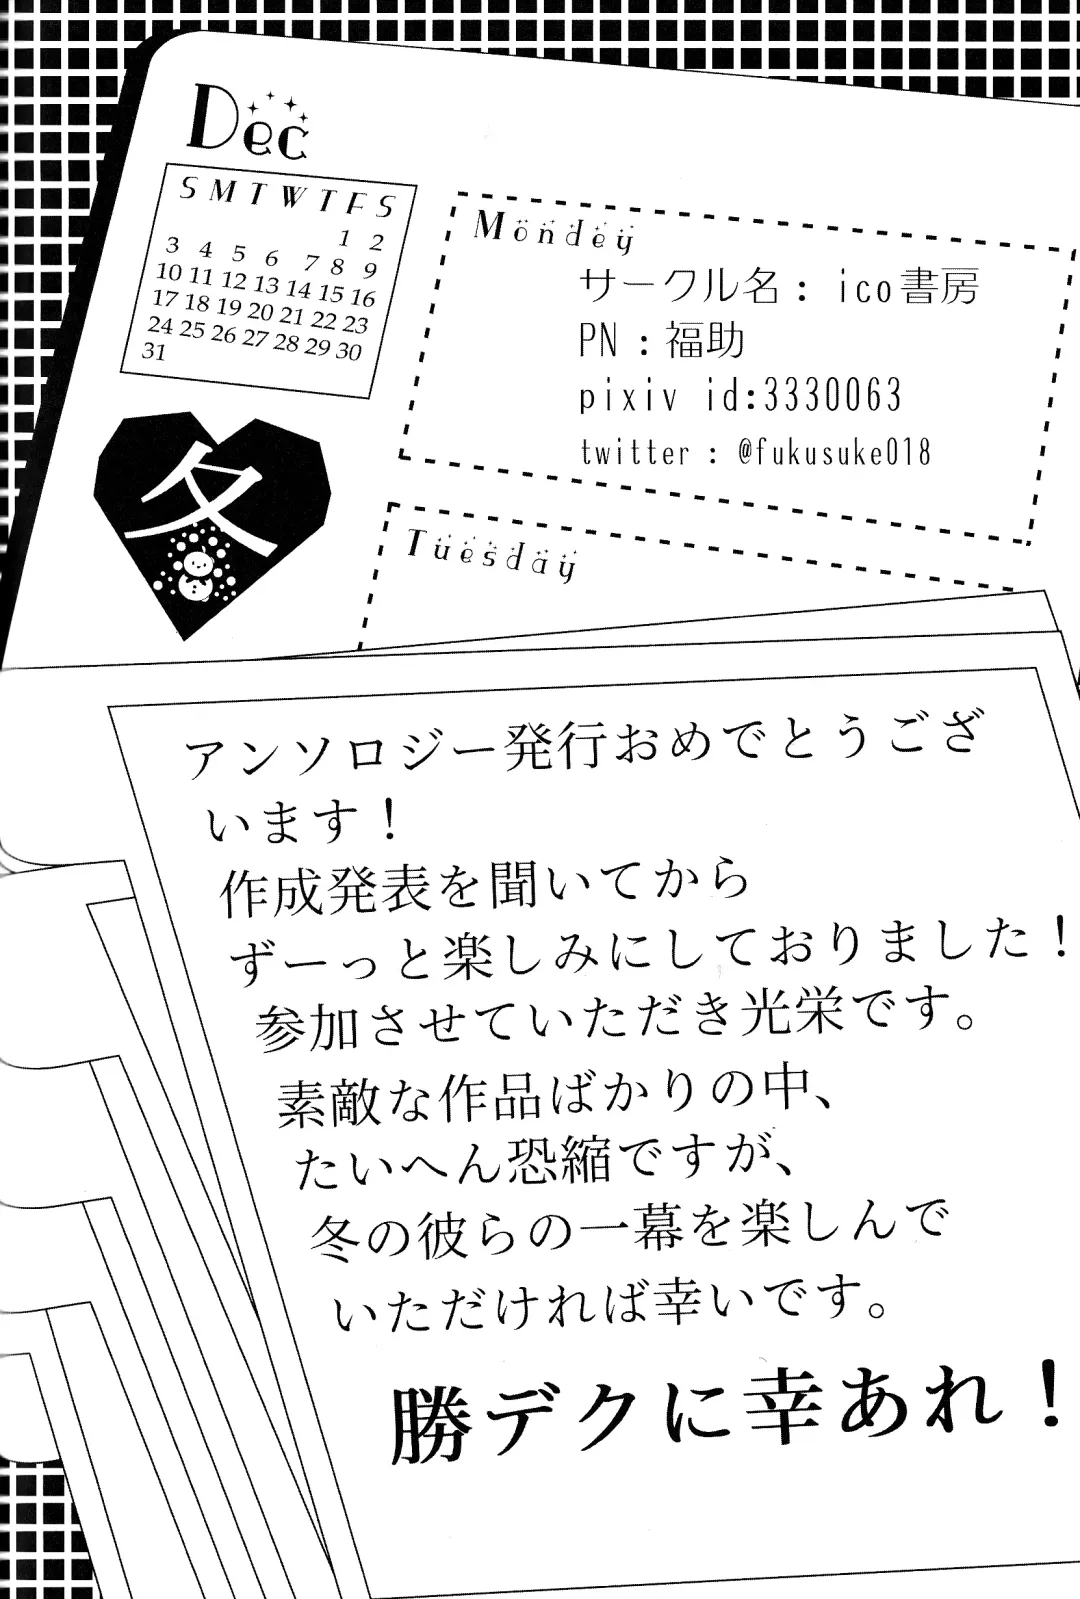 Dec
S M T W T F S
1 2
3 4 5 6 7 8 9
10 11 12 13 14 15 16
17 18 19 20 21 22 23
24 25 26 27 28 29 30
31
冬
Mondey
サークル名: ico書房
PN:福助
pixiv id:3330063
twitter: @fukusuke018
Tuesday
アンソロジー発行おめでとうござ
います!
作成発表を聞いてから
ずーっと楽しみにしておりました!
参加させていただき光栄です。
素敵な作品ばかりの中、
たいへん恐縮ですが、
冬の彼らの一幕を楽しんで
いただければ幸いです。
勝デクに幸あれ!